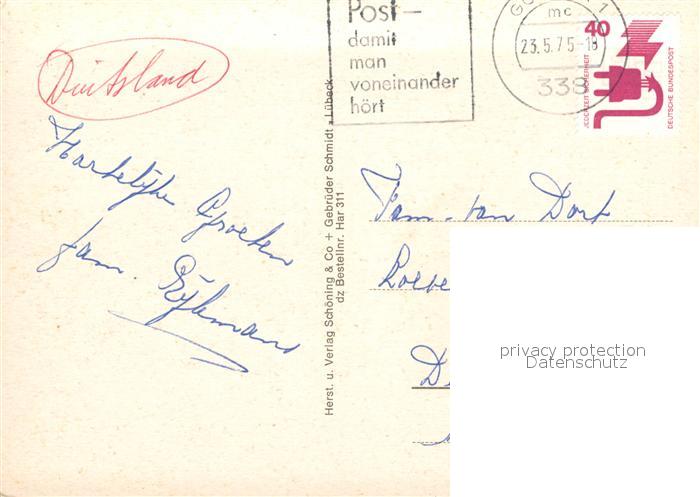 Duitsland
Post-
damit
man
voneinander
hört
1
mc
23.5.75-18
338
40
JEDERZEIT SICHERHEIT
DEUTSCHE BUNDESPOST
Hartelijke Groeten
fam.
Herst. u. Verlag Schöning & Co + Gebrüder Schmidt • Lübeck
dz Bestellnr. Har 311
Fam. van Dort
privacy protection
Datenschutz